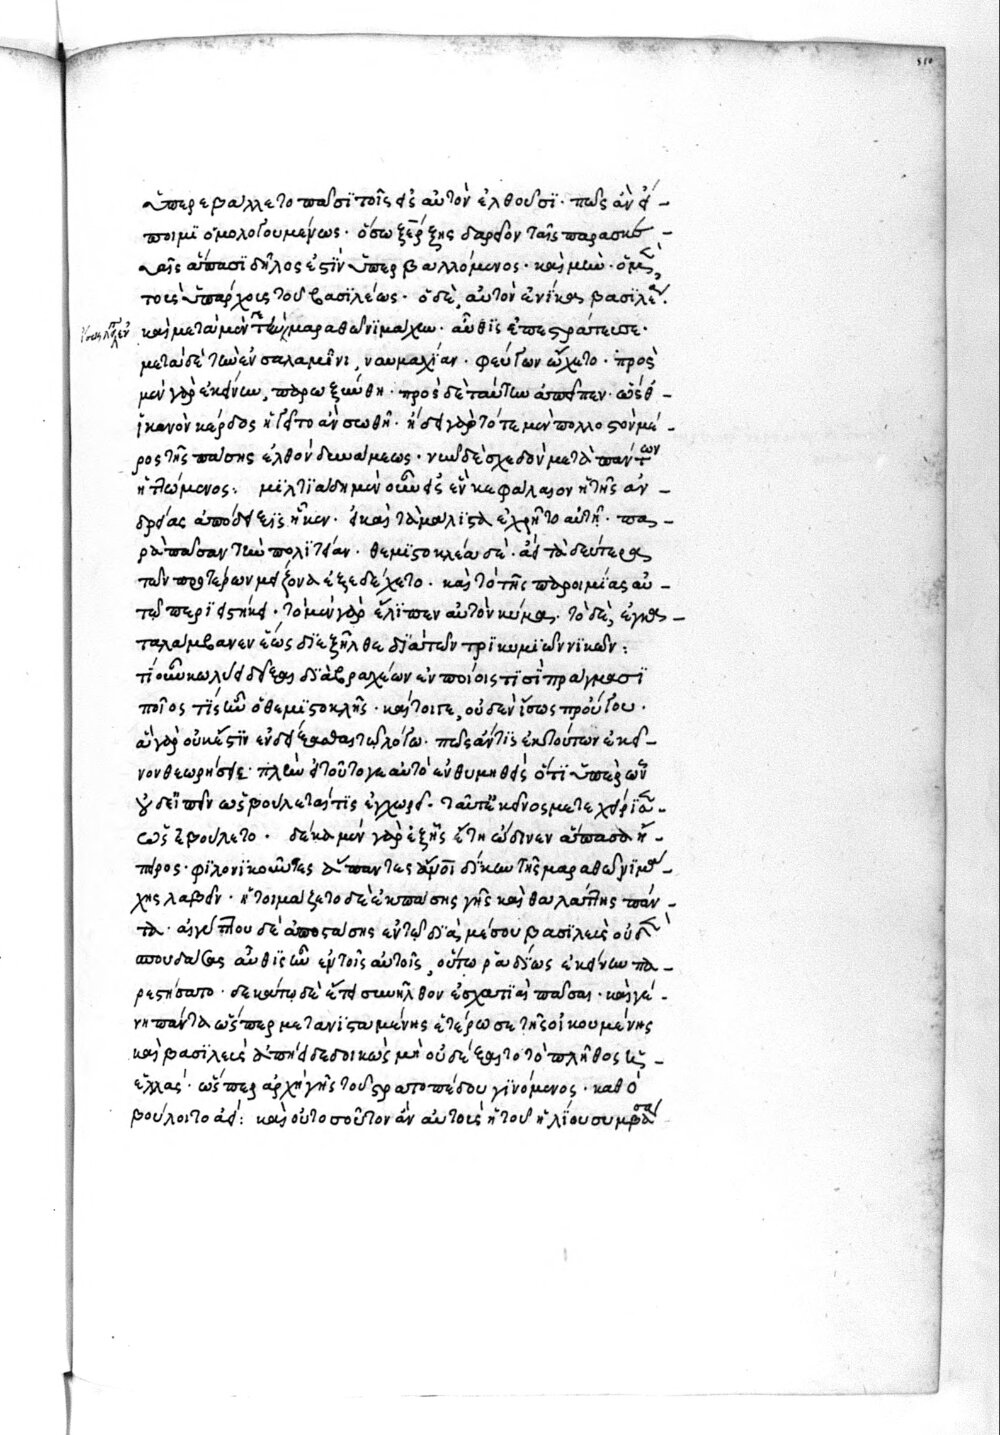 ὑπερεβάλλετο πᾶσι τοῖς εἰς αὐτὸν ἐλθοῦσι· πῶς ἂν εἴ
ποιμι ὁμολογουμένως. ὅσω ξέρξης δαρεῖον ταῖς παρασκευ
αῖς ἅπασι δῆλος ἐστὶν ὑπερβαλλόμενος. καὶ μὴν ὅμως
τοὺς ὑπάρχους τοῦ βασιλέως· ὁ δὲ, αὐτὸν ἐνίκα βασιλέα.
καὶ μετὰ μὲν τὴν μαραθῶνι μάχην αὖθις ἐπεστράτευσε·
μετὰ δὲ τὴν ἐν σαλαμῖνι, ναυμαχίαν· φεύγων ὤχετο· πρὸς
μὲν γὰρ ἐκείνην, παρωξύνθη· πρὸς δὲ ταύτην ἀπεῖπεν·
ἱκανὸν κέρδος ἡγεῖτο ἂν σωθῇ· ᾔδει γὰρ τότε μὲν πολλοστὸν μέ
ρος τῆς πάσης ἐλθὸν δυνάμεως· νῦν δὲ σχεδὸν μετὰ πάντων
ἡττώμενος: μιλτιάδη μὲν οὖν εἰς ἓν κεφάλαιον ἡ τῆς ἀν
δρείας ἀπόδειξις ἧκεν· εἰ καὶ τὰ μάλιστα ἐχρῆτο αὐτῇ· πα
ρὰ πᾶσαν τὴν πολιτείαν· θεμιστοκλέα δὲ· ἀεὶ τὰ δεύτερα
τῶν προτέρων μείζονα ἐξεδέχετο· καὶ τὸ τῆς παροιμίας αὐ
τῶ περιειστήκει· τὸ μὲν γὰρ ἔλιπεν αὐτὸν κῦμα· τὸ δὲ, ἐγκα
ταλάμβανεν ἕως διεξῆλθε διὰ τῶν τρικυμιῶν νικῶν:
τί οὖν κωλύει δεῖξαι διὰ βραχέων ἐν ποίοις τισὶ πράγμασι
ποῖος τίς ἦν ὁ θεμιστοκλῆς· καίτοιγε, οὐδὲν ἴσως προὔργου·
ἃ γὰρ οὐκ ἔστιν ἐνδείξασθαι τῶ λόγω· πῶς ἄν τις ἐκ τούτων ἐκεῖ
νον θεωρήσειε· πλὴν εἰ τοῦτό γε αὐτὸ ἐνθυμηθεὶς ὅτι ὑπὲρ ὧν
οὐδ' εἰπεῖν ὡς βούλεταί τις ἐγχωρεῖ· ταῦτ' ἐκεῖνος μετεχειρίσατο
ὡς ἐβούλετο· δέκα μὲν γὰρ ἑξῆς ἔτη ὤδινεν ἅπασα ἤ
πειρος· φιλονικοῦντος ἅπαντας δίκην τῆς μαραθῶνι μά
χης λαβεῖν· ἡτοιμάζετο δὲ ἐκ πάσης γῆς καὶ θαλάττης πάν
τα· αἰγύπτου δὲ ἀποστάσης ἐν τῶ διὰ μέσου βασιλεὺς οὐδὲν
σπουδάσας αὖθις ἦν ἐν τοῖς αὐτοῖς, οὕτω ῥαδίως ἐκείνην πα
ρεστήσατο· δεκάτω δὲ ἔτει συνῆλθον ἐσχατιαὶ πᾶσαι· καὶ γέ
νη πάντα ὥσπερ μετανισταμένης ἑτέρωσε τῆς οἰκουμένης
καὶ βασιλεὺς ἀπῄει δεδοικὼς μὴ οὐ δέξαιτο τὸ πλῆθος ἡ
ἑλλάς· ὥσπερ ἀρχὴ γῆς τοῦ στρατοπέδου γινόμενος· καθὸ
βούλοιτο ἀεί: καὶ οὐ τοσοῦτον ἂν αὐτοὺς ἡ τοῦ ἡλίου συμβᾶσα